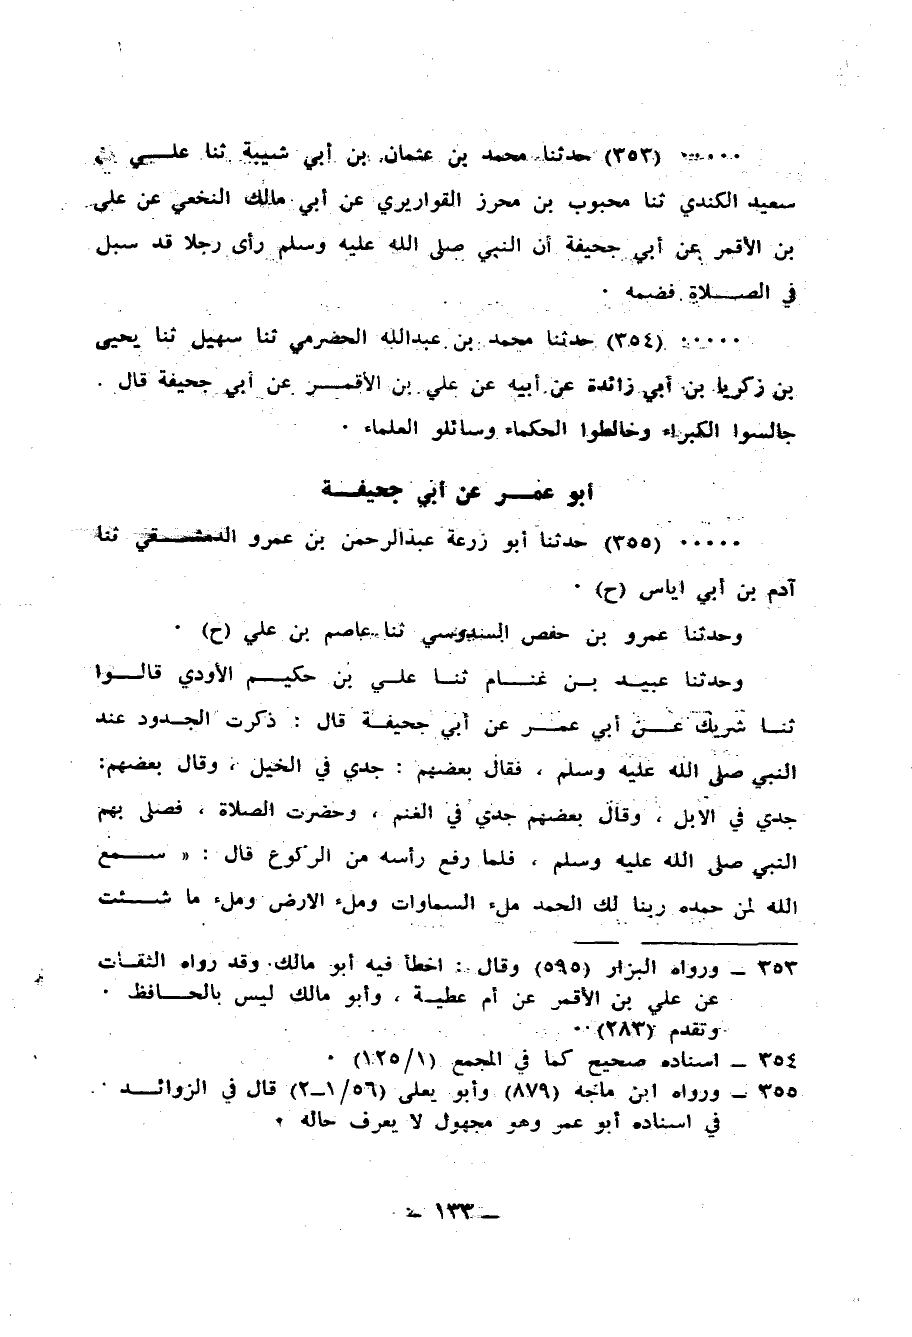 ٠٠٠٠٠ (٣٥٣) حدثنا محمد بن عثمان بن أبي شيبة ثنا علــي بن
سعيد الكندي ثنا محبوب بن محرز القواريري عن أبي مالك النخعي عن على
بن الأقمر عن أبي جحيفة أن النبي صلى الله عليه وسلم رأى رجلا قد سبل
في الصــلاة فضمه ٠
٠٠٠٠٠ (٣٥٤) حدثنا محمد بن عبدالله الحضرمي ثنا سهيل ثنا يحيى
بن زكريا بن أبي زائدة عن أبيه عن علي بن الأقمــر عن أبي جحيفة قال ٠
جالسوا الكبراء وخالطوا الحكماء وسائلو العلماء ٠
أبو عمــر عن أبي جحيفــة
٠٠٠٠٠ (٣٥٥) حدثنا أبو زرعة عبدالرحمن بن عمرو الدمشــقي ثنا
آدم بن أبي اياس (ح) ٠
وحدثنا عمرو بن حفص السدوسي ثنا عاصم بن علي (ح) ٠
وحدثنا عبيــد بــن غنــام ثنــا علــي بن حكيــم الأودي قالــوا
ثنــا شريك عــن أبي عمــر عن أبي جحيفــة قال : ذكرت الجــدود عند
النبي صلى الله عليه وسلم ، فقال بعضهم : جدي في الخيل ، وقال بعضهم:
جدي في الابل ، وقال بعضهم جدي في الغنم ، وحضرت الصلاة ، فصلى بهم
النبي صلى الله عليه وسلم ، فلما رفع رأسه من الركوع قال : « ســمع
الله لمن حمده ربنا لك الحمد ملء السماوات وملء الارض وملء ما شــئت
٣٥٣ ــ ورواه البزار (٥٩٥) وقال : اخطأ فيه أبو مالك وقد رواه الثقــات
عن علي بن الأقمر عن أم عطيــة ، وأبو مالك ليس بالحــافظ ٠
وتقدم (٢٨٣) ٠
٣٥٤ ــ اسناده صحيح كما في المجمع (١/١٢٥) ٠
٣٥٥ ــ ورواه ابن ماجه (٨٧٩) وأبو يعلى (٥٦/١ــ٢) قال في الزوائــد ٠
في اسناده أبو عمر وهو مجهول لا يعرف حاله ٠
ــ ١٣٣ ــ